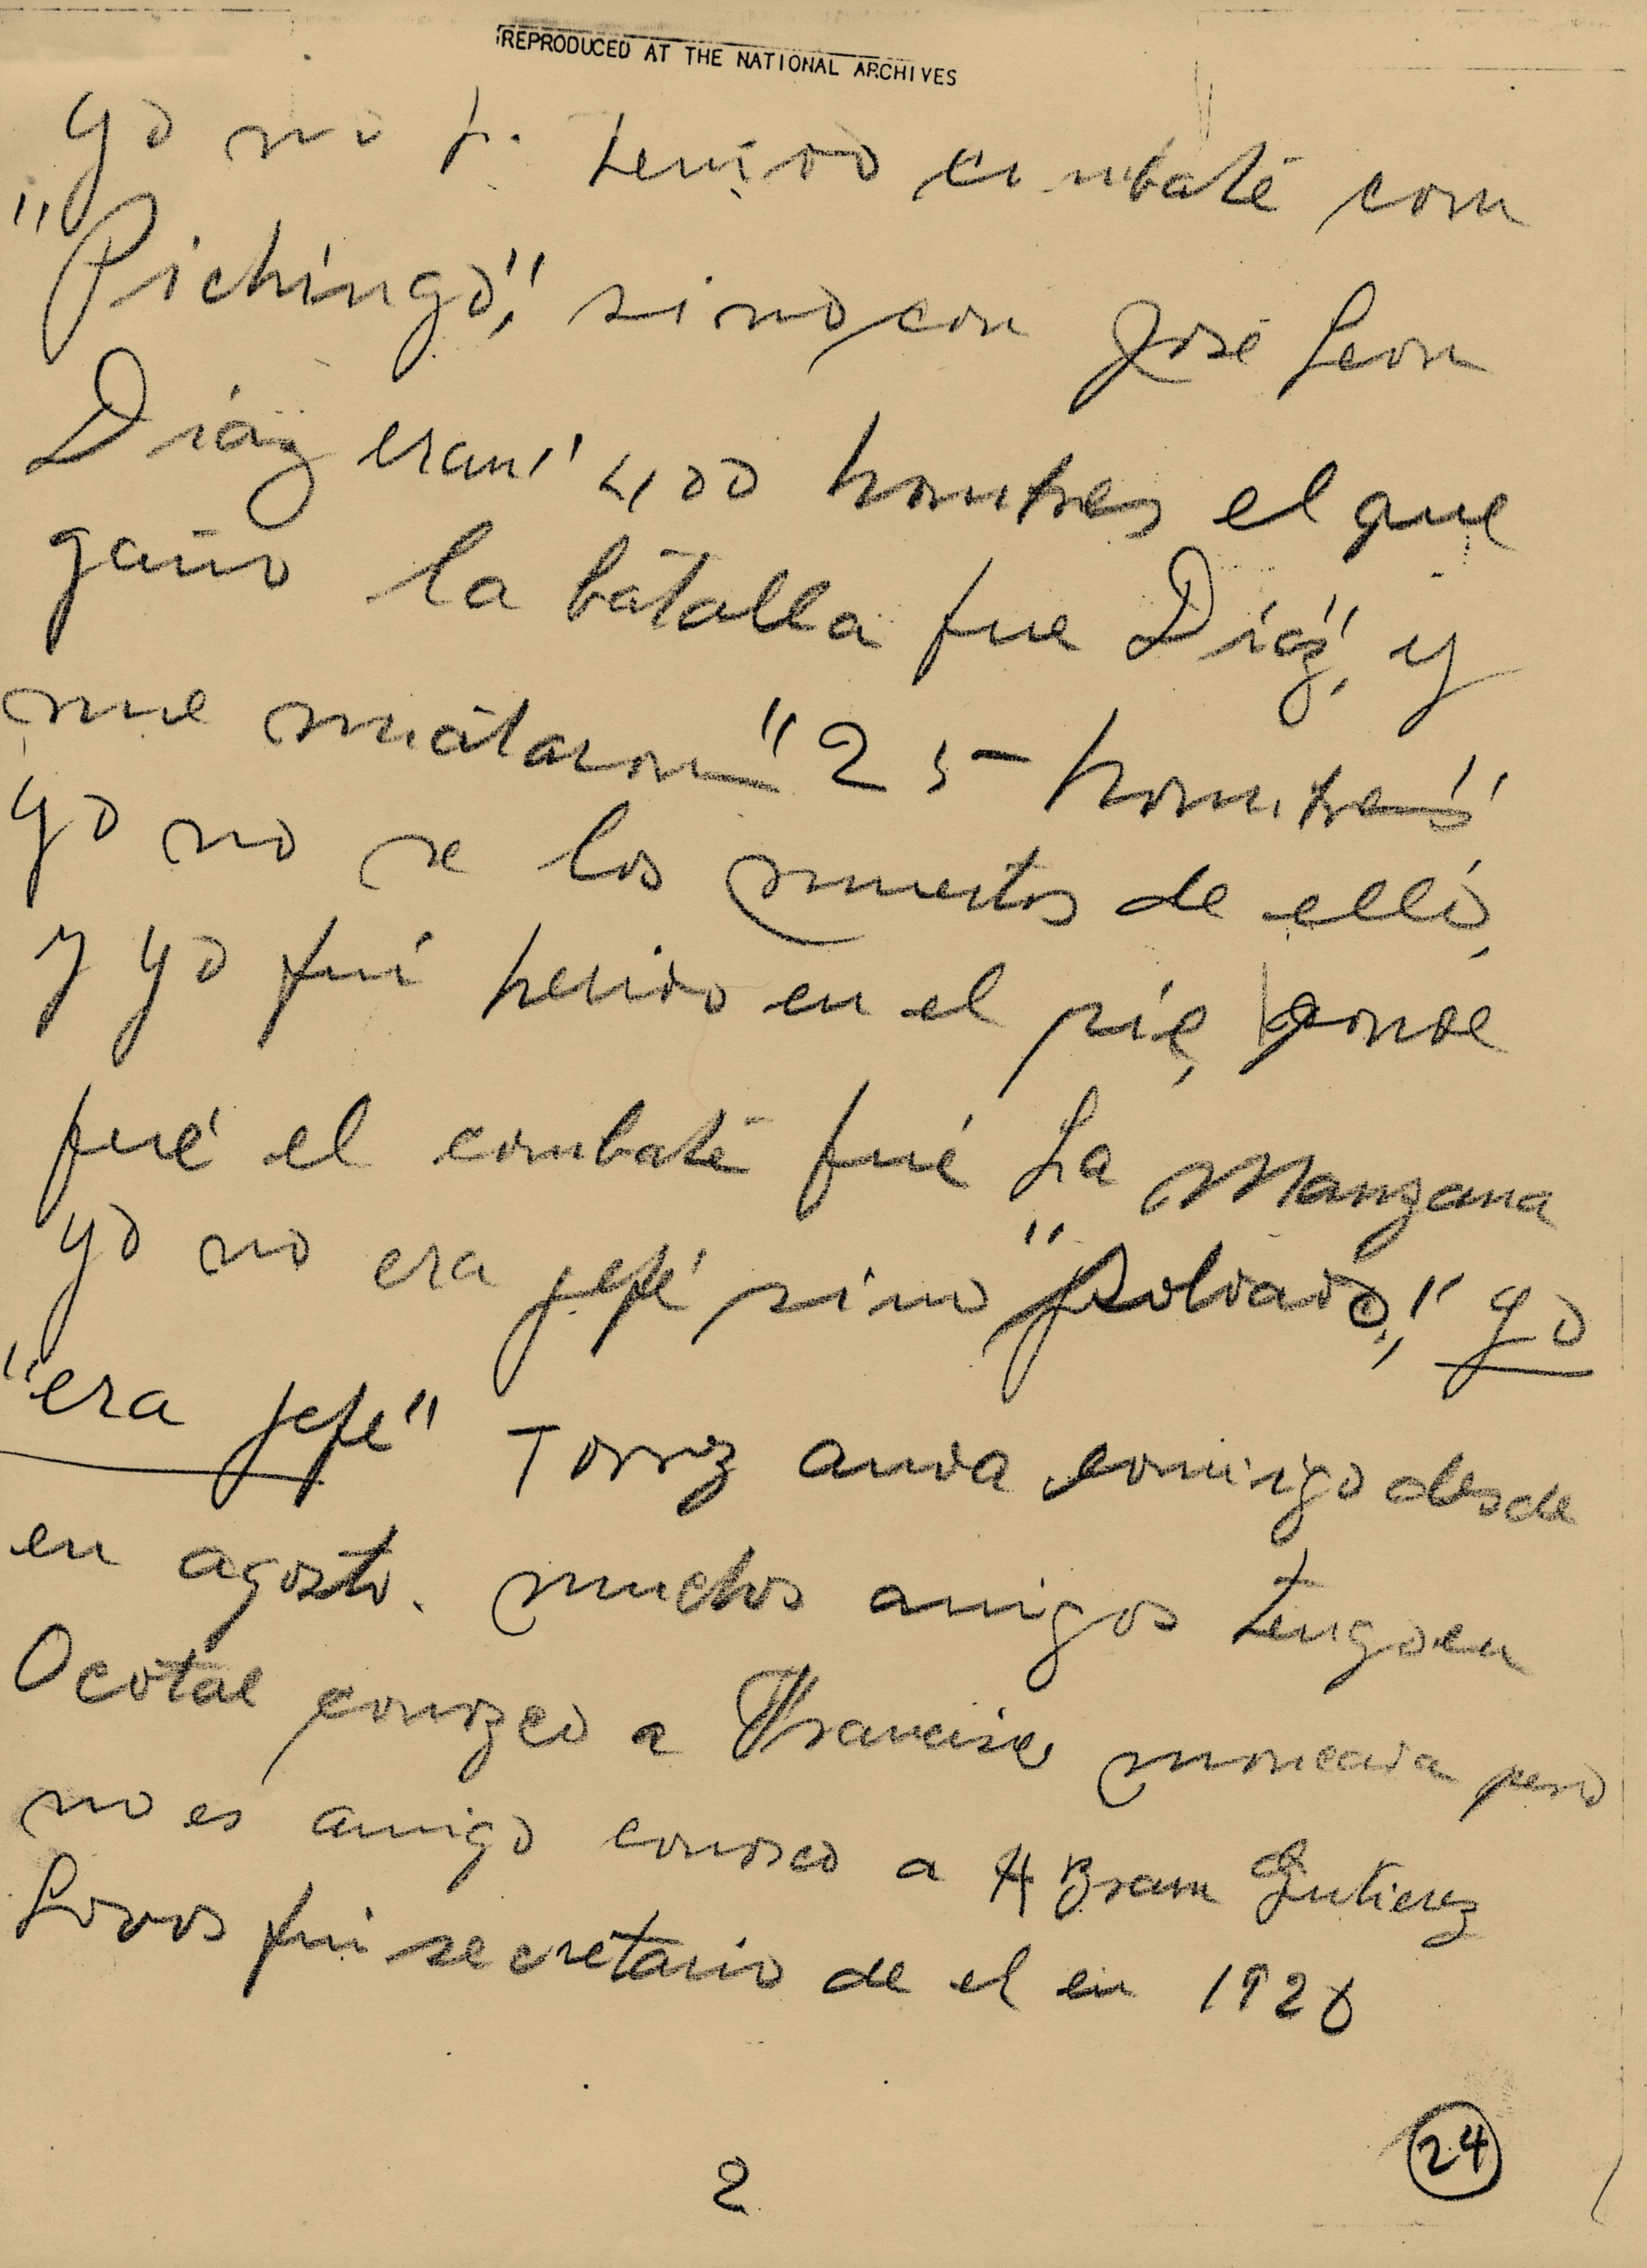 REPRODUCED AT THE NATIONAL ARCHIVES
yo no tenido combaté con
"Pichingo", sino con José Leon
Diáz eran" 400 hombres el que
gano la bátalla fue Diáz", y
me mátaron "25 - hombres"
yo no se los muertos de ellos,
y yo fui herido en el pie, donde
fué el combaté fué La Manzana
yo no era jefé sino "soldado," yo
"era jefe" Torrez anda comigo desde
en agosto. muchos amigos tengo en
Ocotal conozco a Francisco moncada pero
no es amigo conosco a Abram Gutierez
Lovos fui secretario de el en 1926
2
24